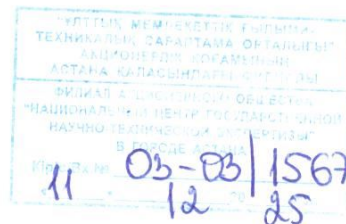 "ҰЛТТЫҚ МЕМЛЕКЕТТІК ҒЫЛЫМИ-
ТЕХНИКАЛЫҚ САРАПТАМА ОРТАЛЫҒЫ"
АКЦИОНЕРЛІК ҚОҒАМЫНЫҢ
АСТАНА ҚАЛАСЫНДАҒЫ ФИЛИАЛЫ
ФИЛИАЛ АКЦИОНЕРНОГО ОБЩЕСТВА
"НАЦИОНАЛЬНЫЙ ЦЕНТР ГОСУДАРСТВЕННОЙ
НАУЧНО-ТЕХНИЧЕСКОЙ ЭКСПЕРТИЗЫ"
В ГОРОДЕ АСТАНА
Вх № 03-03/1567
11 12 25